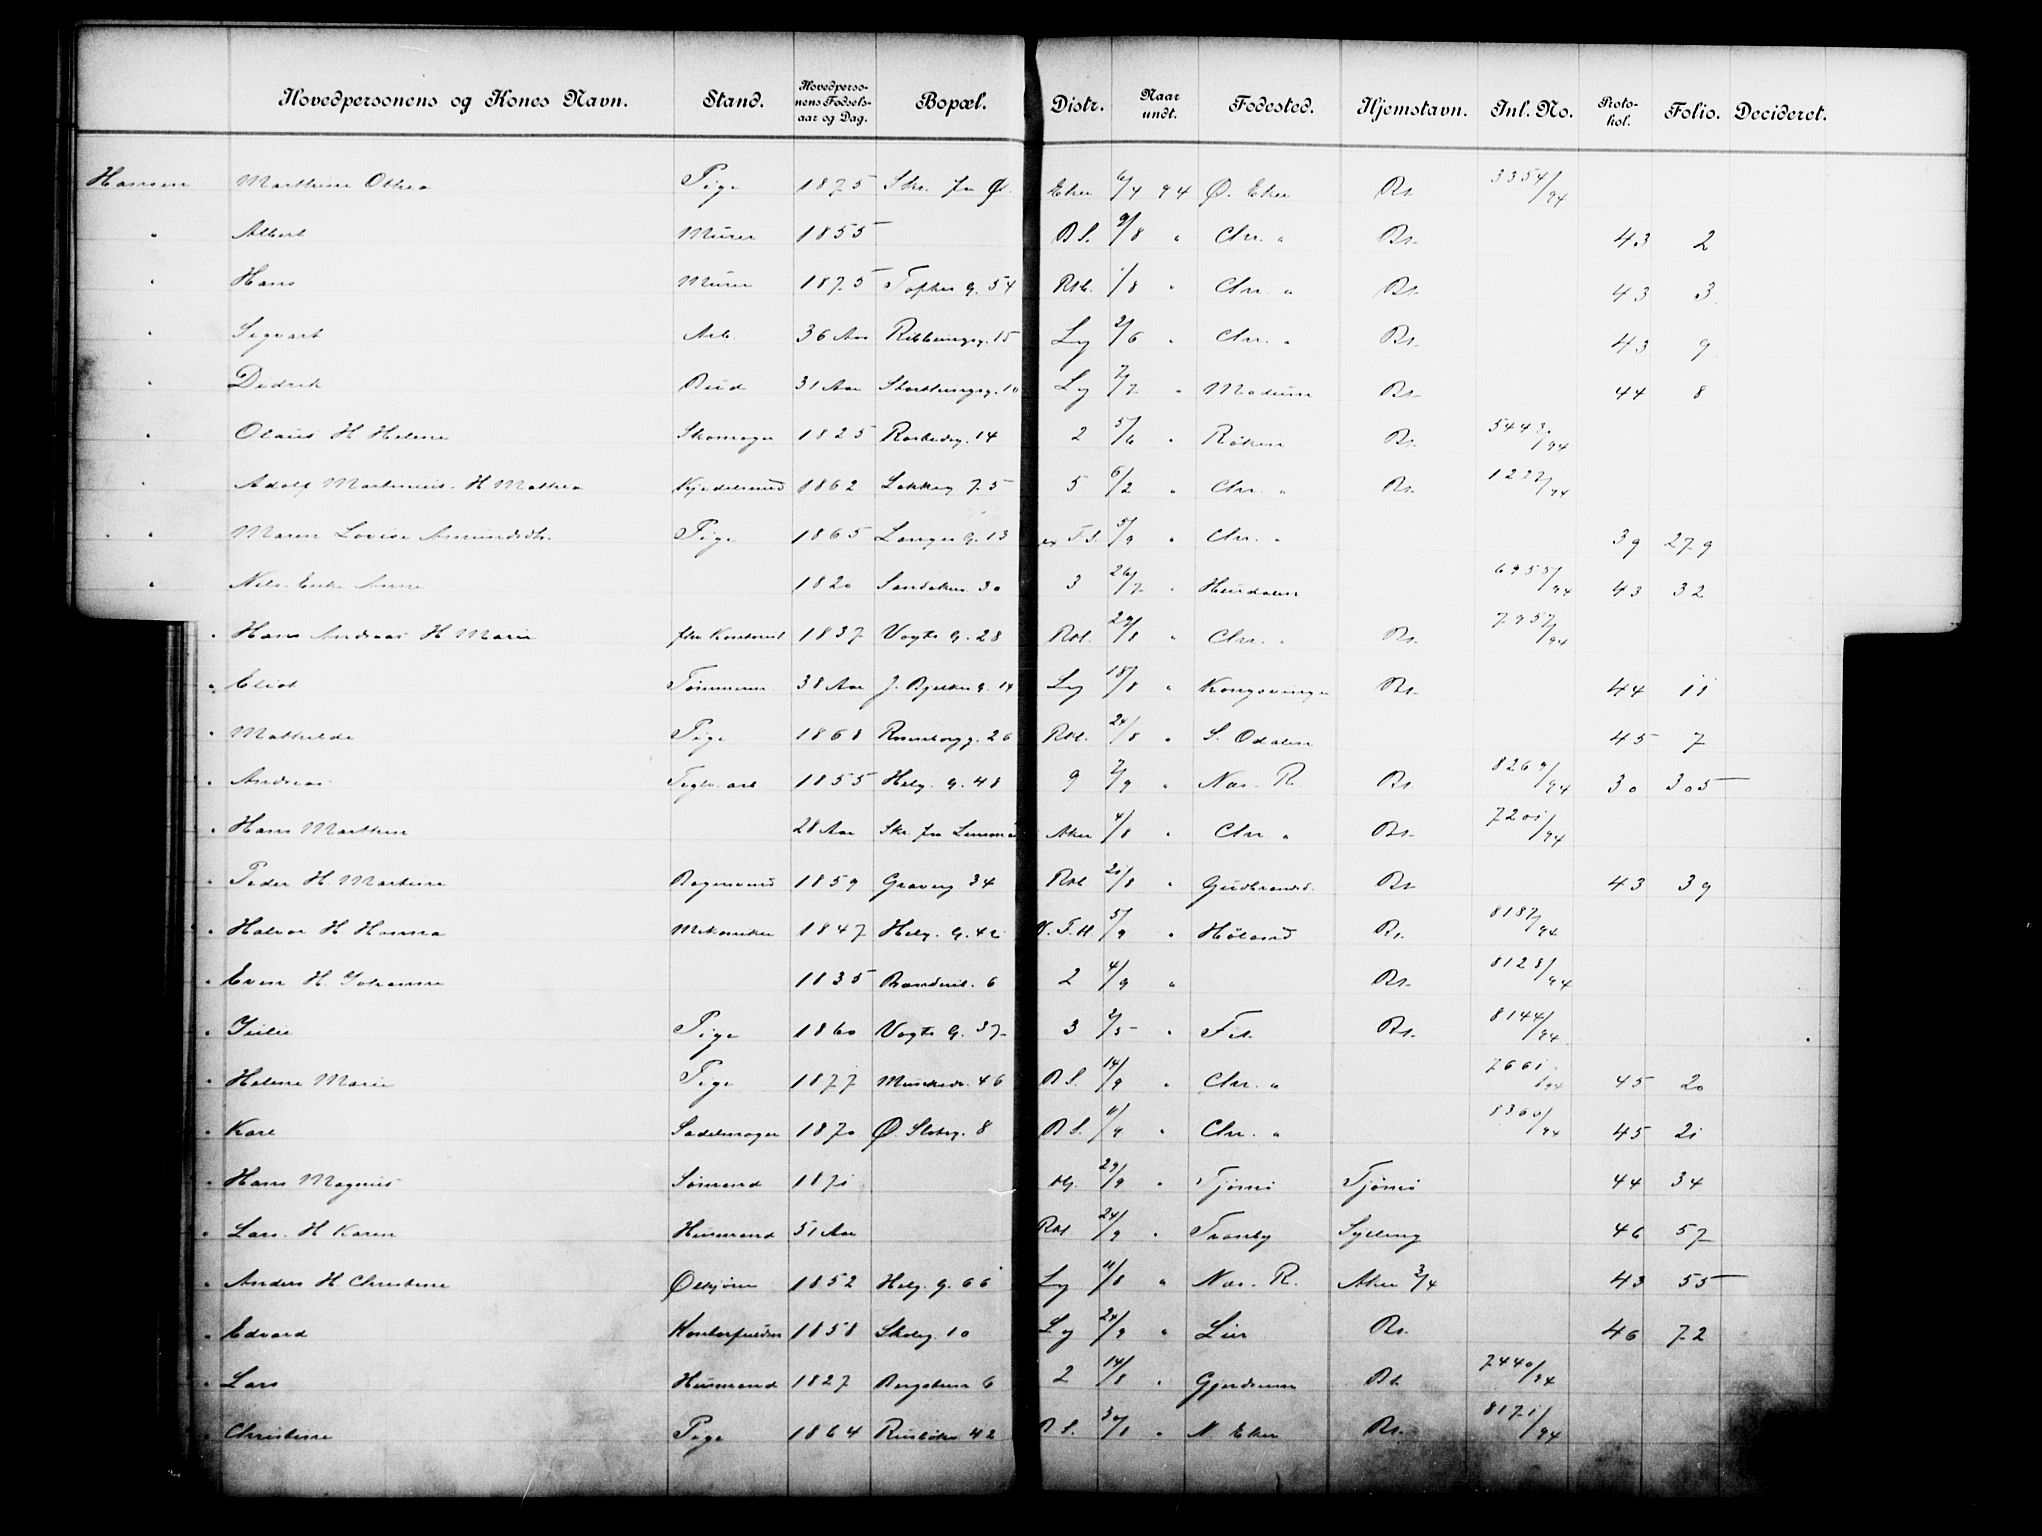 Hovedpersonens og Kones Navn. Stand. Hovedpersonens Fødselsaar og Dag. Bopæl. Distr. Naar undt. Fødested. Hjemstavn. Inl. No. Protokol. Folio. Decideret.
Hansen Marthine Othea Pige 1875 Skr. fra Ø. Eker 6/4 94 Ø. Eker Bs. 3354/94
" Albert Murer 1855 B S. 9/8 " Chr. " Bs. 43 2
" Hans Murer 1875 Tofhes g. 54 Rbl. 1/8 " Chr. " Bs. 43 3
" Sigvart Arb. 36 Aar Ribbungsg. 15 Lg 2/6 " Chr. " Bs. 43 9
" Didrik Bud 31 Aar Storthingsg. 10 Lg 7/7 " Modum Bs. 44 8
" Olaus H Helene Skomager 1825 14 2 5/6 " Røken Bs. 5442/94
" Adolf Martinius. H Mathea Kjedelsmed 1862 Løkkeg 75 5 6/2 " Chr. " Bs. 1227/94
" Maren Lovise Amundsdtr. Pige 1865 Langes g. 13 F S. 5/9 " Chr. " 39 279
" Nils. Enke Anne 1820 Sandaker 30 3 26/7 " Hurdalen 6955/94 43 32
" Hans Andreas H Marie fhv Kontorist 1837 Vogts G. 28 Rbl. 29/8 " Chr. " Bs. 7957/94
" Eliot Tømmerm. 38 Aar J. Bjelkes g. 14 Lg 18/8 " Kongsvinger Bs. 44 11
" Mathilde Pige 1868 Rosenborgg. 26 Rbl. 24/8 " S. Odalen 45 7
" Andreas Teglv. arb 1855 Helg. G. 48 9 7/9 " Næs. R. Bs. 8269/94 30 305
" Hans Marthin 28 Aar Skr. fra Lensmand Aker 4/8 " Chr. " Bs. 7201/94
" Peder H. Martine Bogersvend 1859 Graverg 34 Rbl 21/8 " Gudbrandsd. Bs 43 39
" Halvor H Hanna Mekaniker 1847 Helg. G. 42 V. F. H 5/9 " Høland Bs. 8187/94
" Even H. Johanne 1835 Brandvst. 6 2 4/9 " Bs. 8128/94
" Julie Pige 1860 Vogts G. 37 3 2/5 " Fet. Bs. 8144/94
" Helene Marie Pige 1877 Munkeds. 46 B S. 14/9 " Chr. " 7661/94 45 20
" Karl Sadelmager 1870 Ø. Slotsg. 8 B S. 11/9 " Chr. " 8360/94 45 21
" Hans Magnus Sømand 1871 29/9 " Tjømø Tjømø 44 34
" Lars. H Karen Husmand 51 Aar Rbl 24/9 " Tranby Sylling 46 57
" Anders H Christine Ølkjører 1852 Helg. G. 66 Lg 11/8 " Næs. R. Aker 3/4 43 55
" Edvard Kontorfuldm 1858 Skoleg. 10 Lg 24/9 " Lier Bs. 46 72
" Lars Husmand 1827 Bergslien 6 2 14/8 " Gjerdrum Bs. 7440/94
" Christine Pige 1864 Ruseløkv 42 B S. 30/8 " N Eker Bs. 8171/94